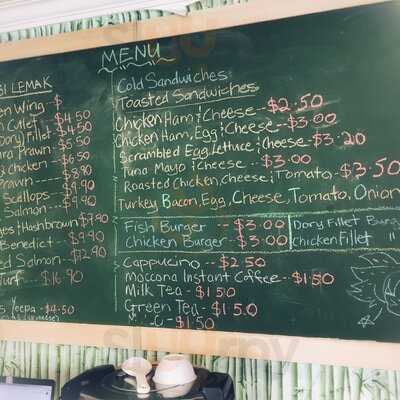 MENU
BI LEMAK
en Wing - $
n Cutlet $4.50
Dory) Fillet $4.50
ara Prawn $5.50
chicken $6.50
Prawn $8.90
Scallops $9.90
Salmon $9.90
es & Hashbrown $7.90
Benedict - $9.90
ed Salmon - $12.90
Turf - $16.90
Yeepa - $4.50
Cold Sandwiches
Toasted Sandwiches
Chicken Ham & Cheese -- $2.50
Chicken Ham, Egg & Cheese -- $3.00
Scrambled Egg, Lettuce & cheese -- $3.20
Tuna Mayo & Cheese -- $3.00
Roasted Chicken, cheese & Tomato - $3.50
Turkey Bacon, Egg, Cheese, Tomato, Onion
Fish Burger -- $3.00
Chicken Burger -- $3.00
Dory Fillet Burg
Chicken Fillet "
Cappucino -- $2.50
Maccona Instant Coffee -- $1.50
Milk Tea - $1.50
Green Tea - $1.50
$1.50